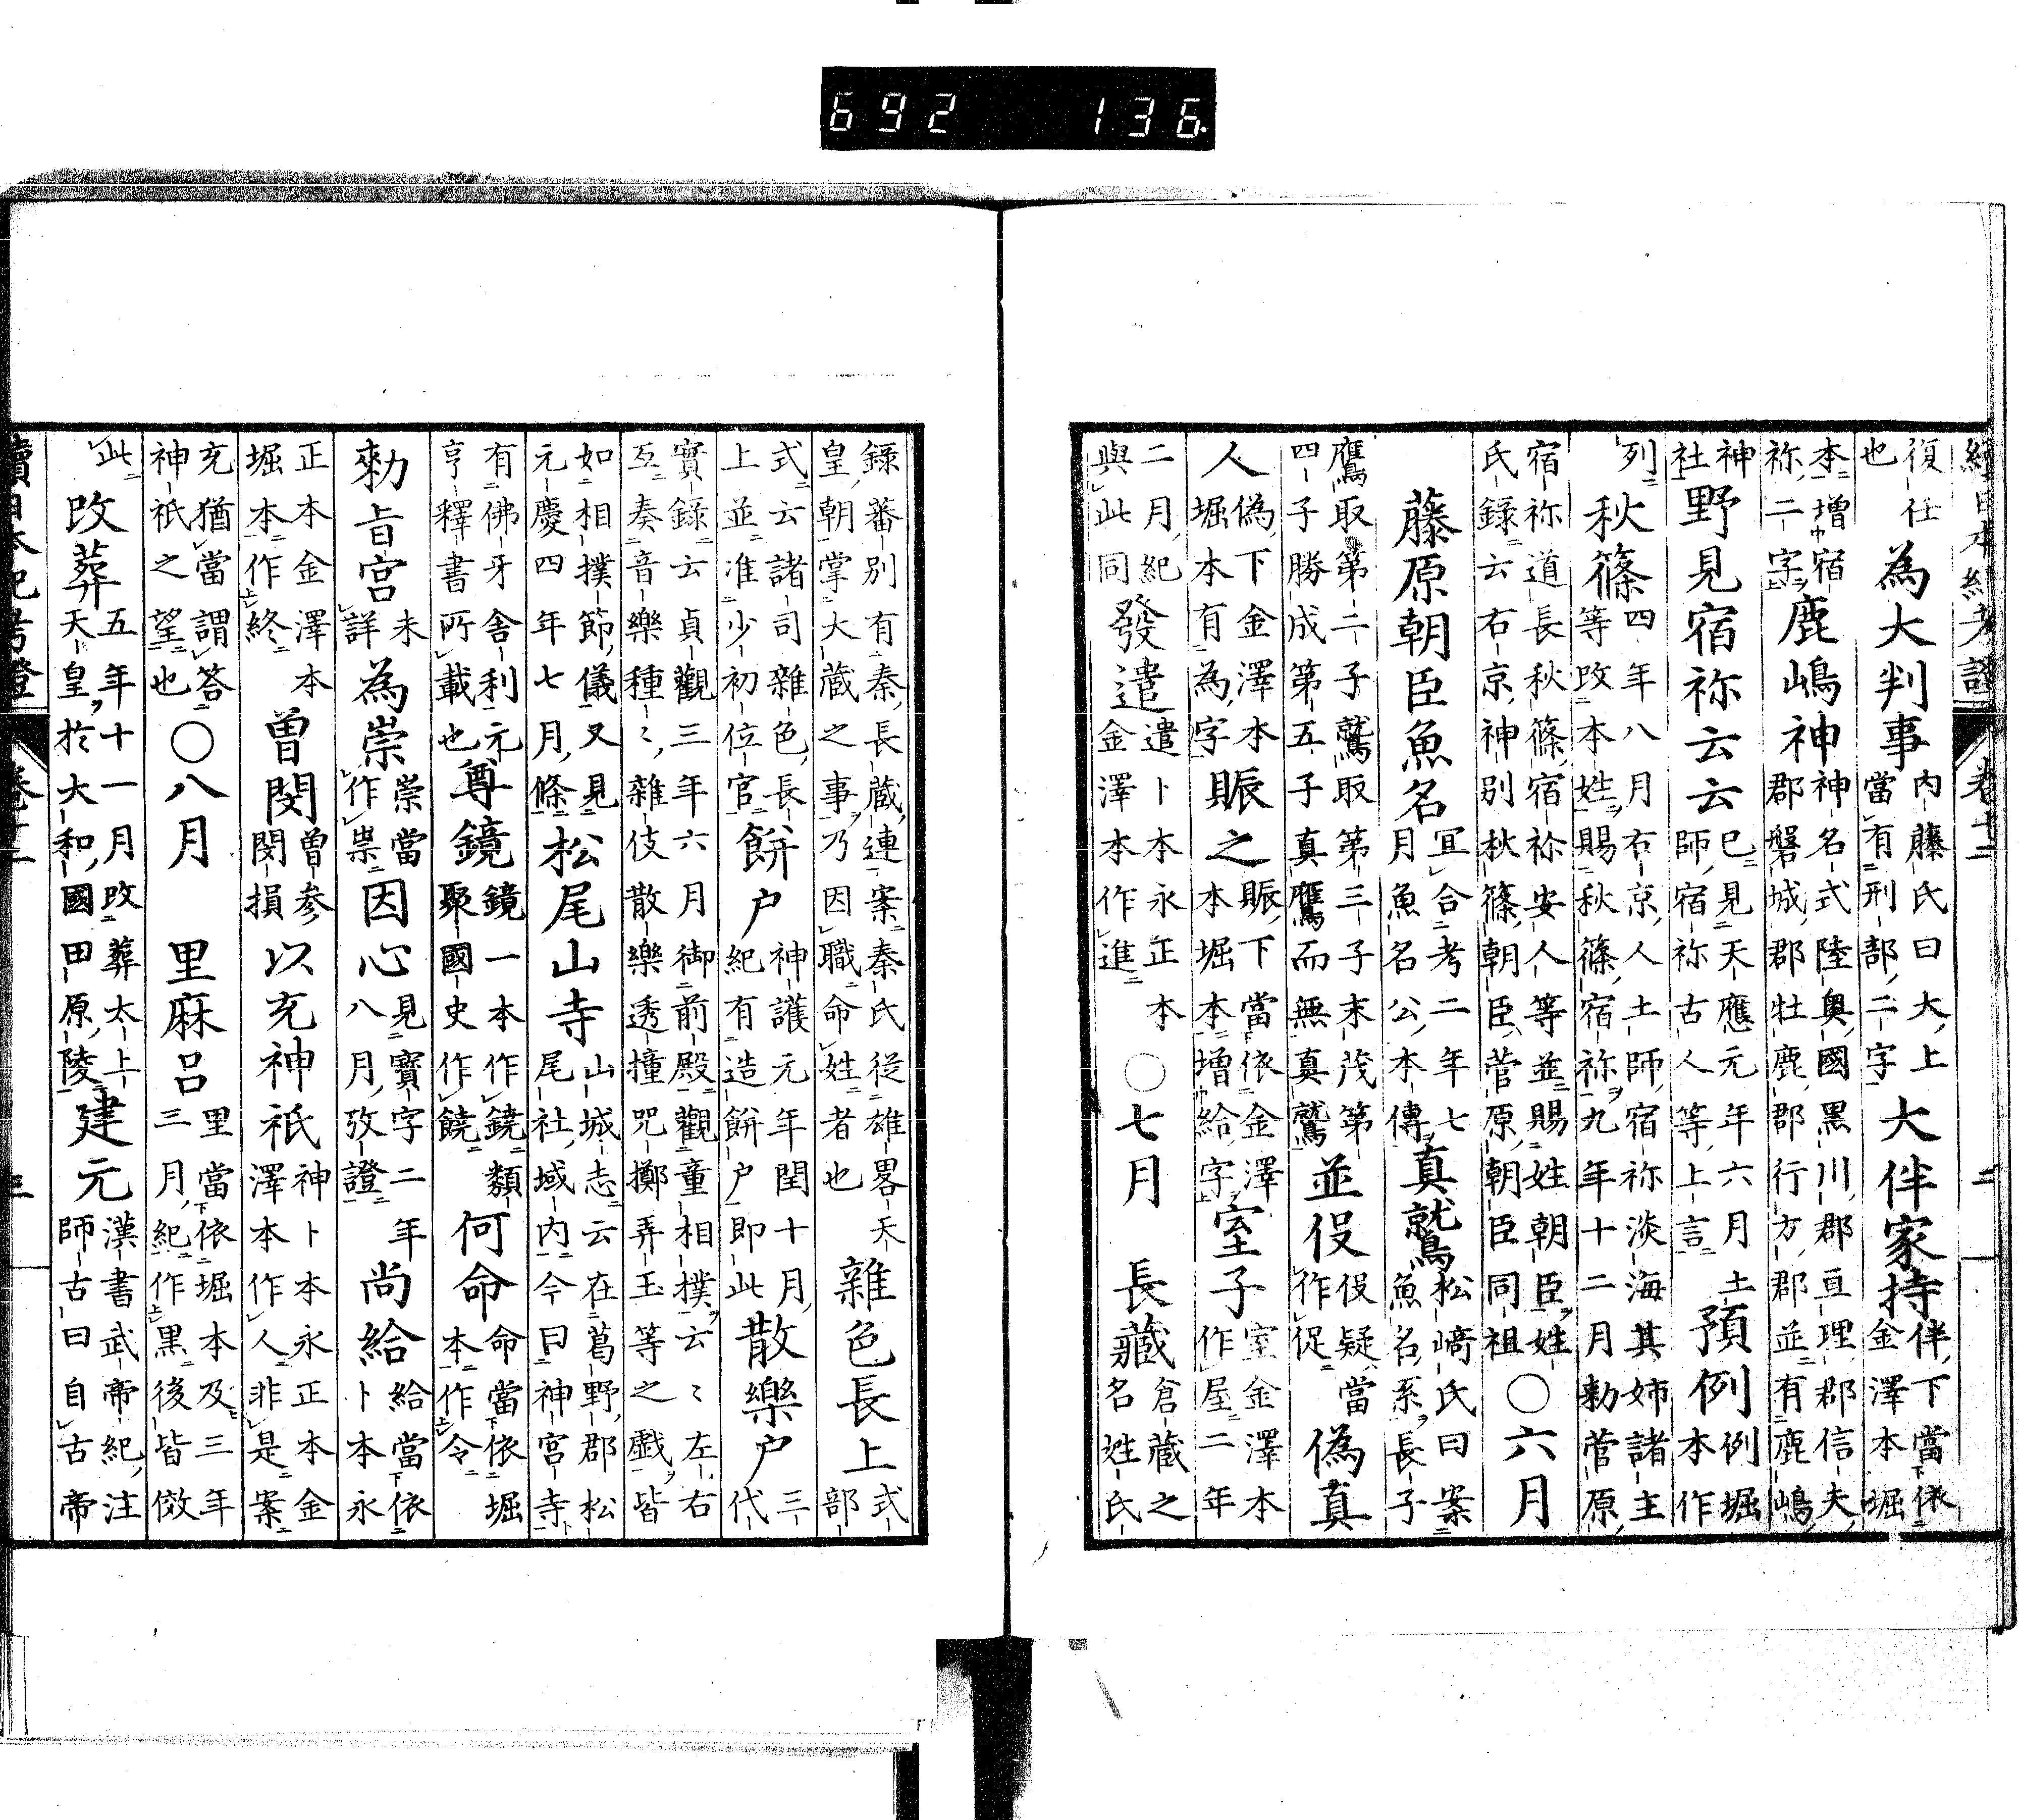 續日本紀考證 卷十二 二
復任也 為大判事 內藤氏曰大上當有刑部二字 大伴家持 伴下當依金澤本堀
本增宿祢二字 鹿嶋神 神名式陸奧國黑川郡亘理郡信夫郡磐城郡牡鹿郡行方郡並有鹿嶋
神社 野見宿祢云云 已見天應元年六月土師宿祢古人等上言 預例 例堀本作
列 秋篠 四年八月右京人土師宿祢淡海其姉諸主等改本姓賜秋篠宿祢九年十二月勅菅原
宿祢道長秋篠宿祢安人等並賜姓朝臣姓氏錄云右京神別秋篠朝臣菅原朝臣同祖 〇六月
藤原朝臣魚名 冝合考二年七月魚名公本傳 真鷲 松﨑氏曰案魚名系長子
鷹取第二子鷲取第三子末茂第四子勝成第五子真鷹而無真鷲 並伇 伇疑當作促 偽真
人 偽下金澤本堀本有為字 賑之 賑下當依金澤本堀本增給字 室子 室金澤本作屋二年
二月紀與此同 發遣 遣卜本永正本金澤本作進 〇七月 長藏 倉藏之名姓氏
錄蕃別有秦長藏連案秦氏從雄畧天皇朝掌大藏之事乃因職命姓者也 雜色長上 式部
式云諸司雜色長上並准少初位官 餅户 神護元年閏十月紀有造餅户即此 散樂户 三代
實錄云貞觀三年六月御前殿觀童相撲云〻左右互奏音樂種〻雜伎散樂透撞咒擲弄玉等之戲皆
如相撲節儀又見元慶四年七月條 松尾山寺 山城志云在葛野郡松尾社域内今曰神宮寺
有佛牙舍利元亨釋書所載也 尊鏡 鏡一本作鐃類聚國史作饒 何命 命當依堀本作令
勅旨宫 未詳 為崇 崇當作祟 因心 見寶字二年八月攷證 尚給 給當依卜本永
正本金澤本堀本作終 曽閔 曽參閔損 以充神祇 神卜本永正本金澤本作人非是案
充猶當謂答神祇之望也 〇八月 里麻呂 里當依堀本及三年三月紀作黑後皆倣
此 改葬 五年十一月改葬太上天皇於大和國田原陵 建元 漢書武帝紀注師古曰自古帝
續日本紀考證 卷十二 三
692 136